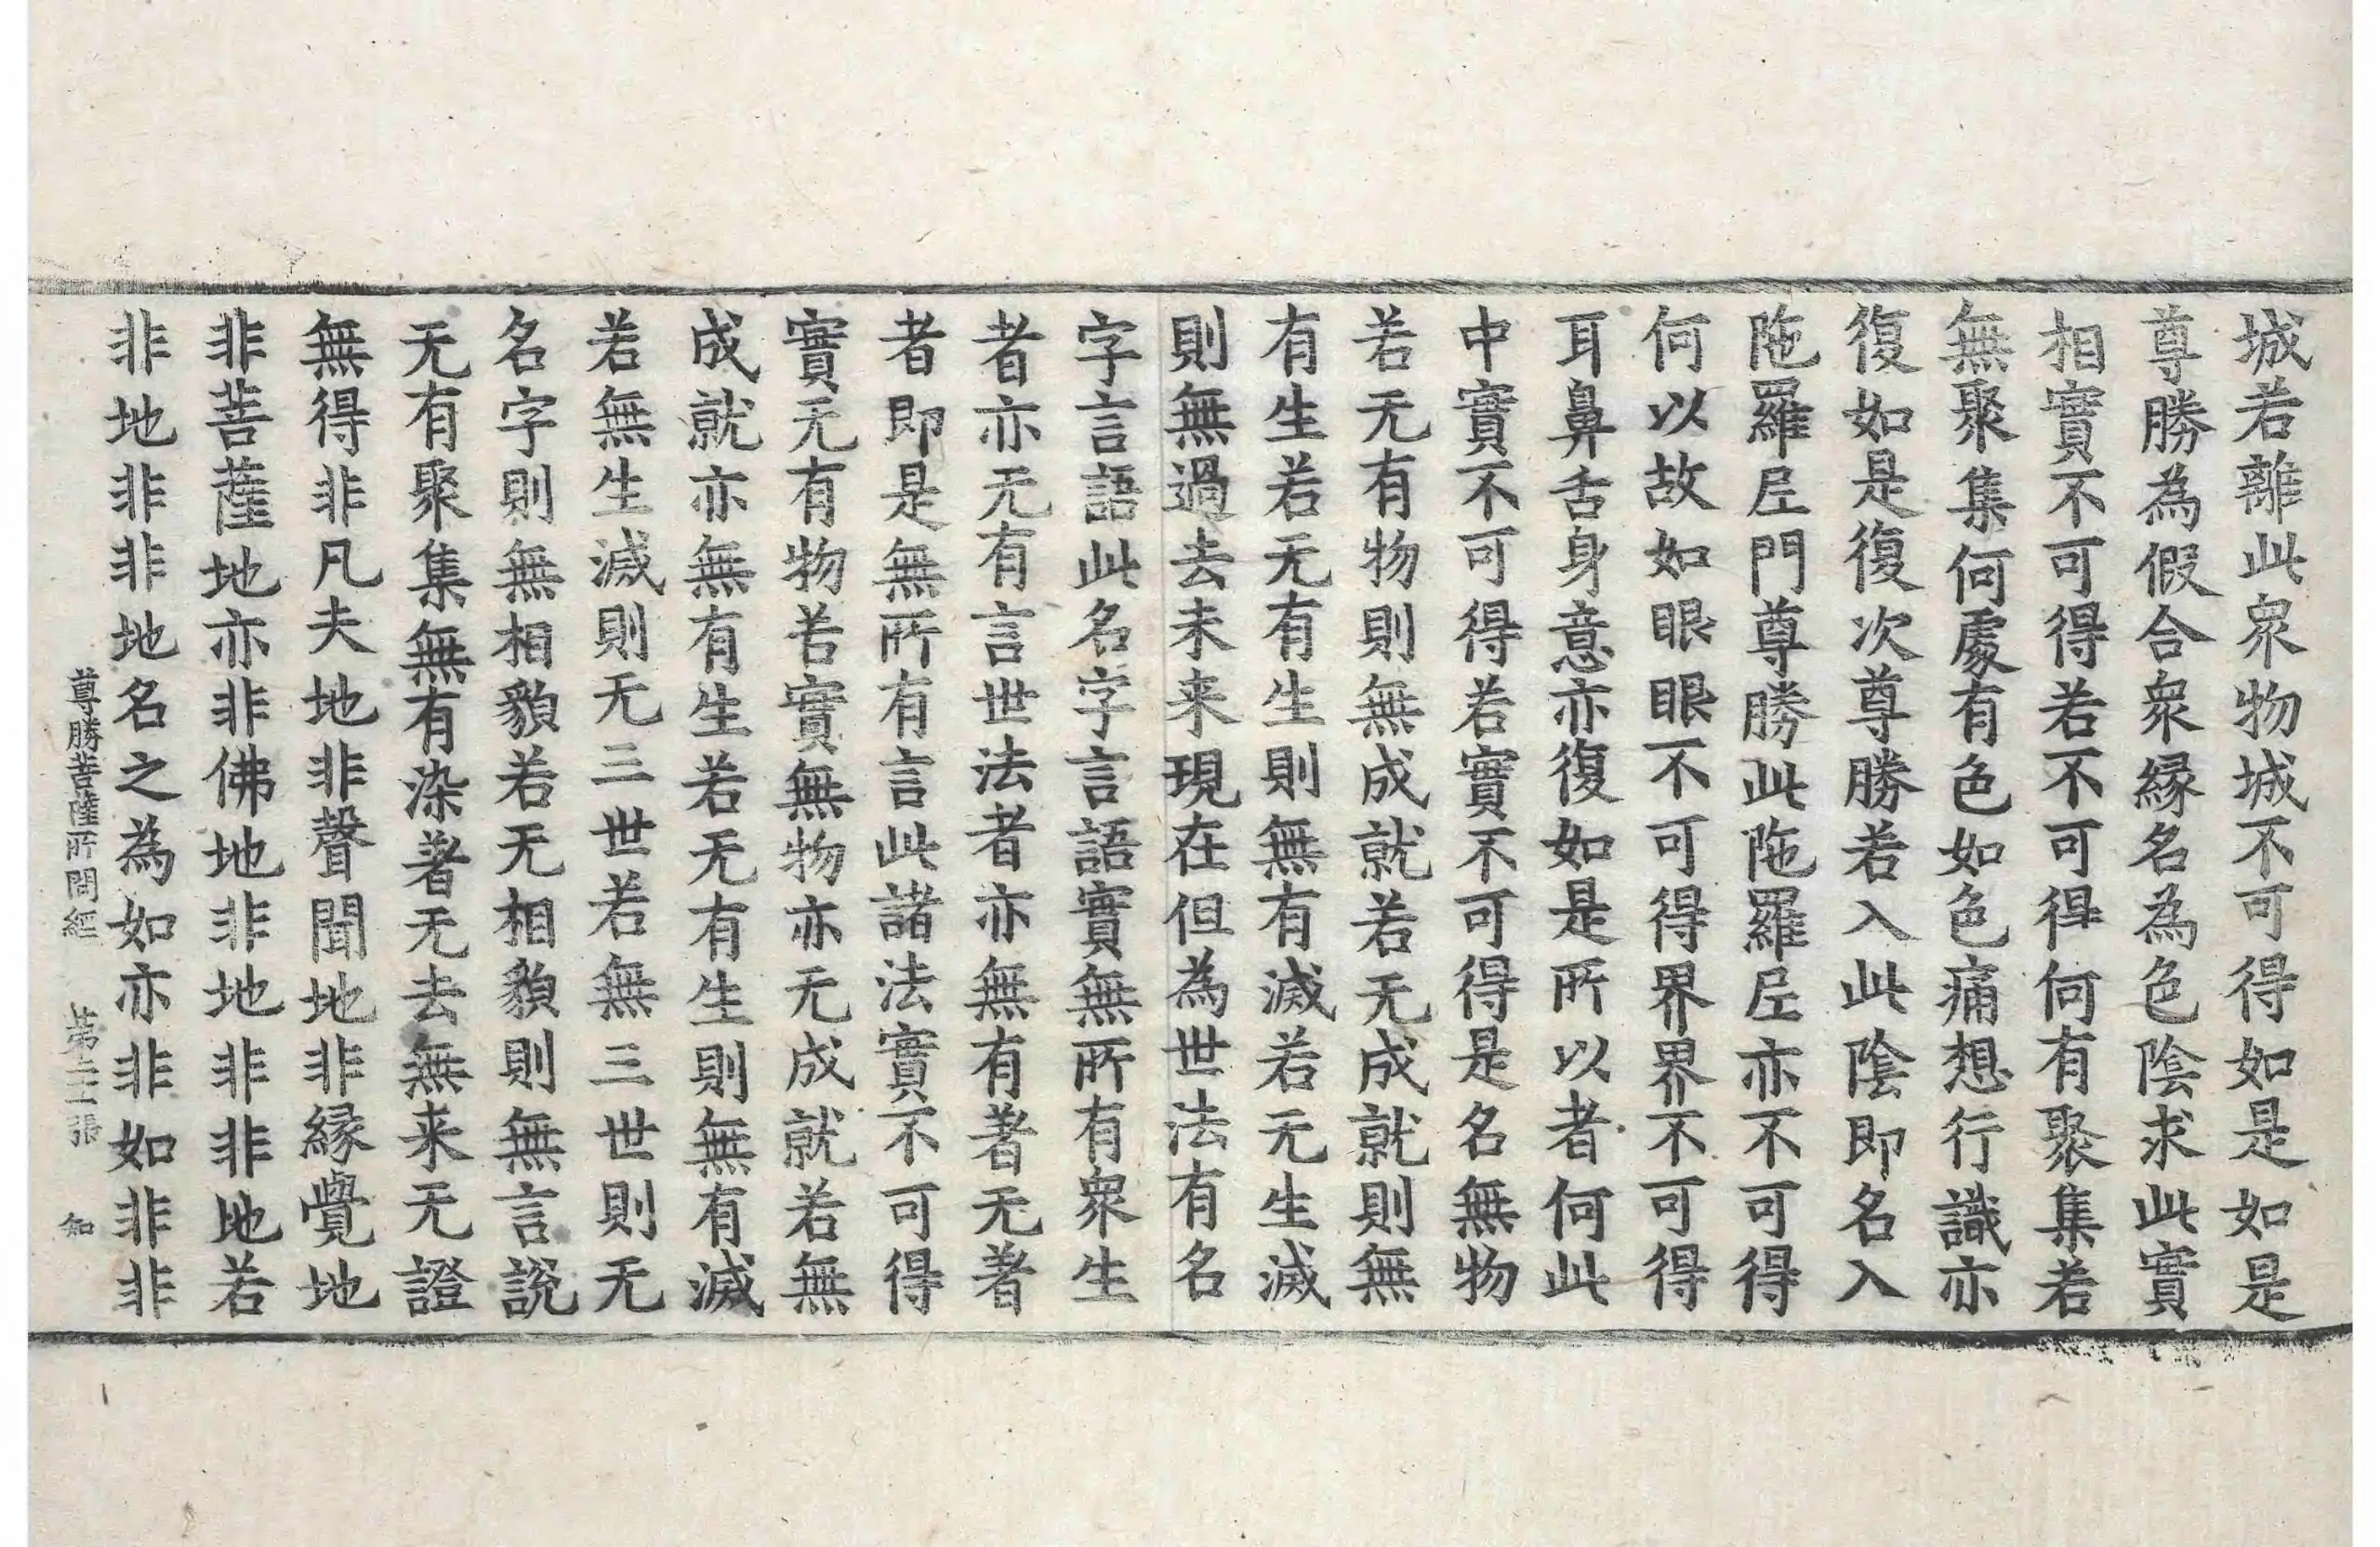 城若離此衆物城不可得如是如是
尊勝為假合衆縁名為色陰求此實
相實不可得若不可得何有聚集若
無聚集何處有色如色痛想行識亦
復如是復次尊勝若入此陰即名入
陁羅𡰱門尊勝此陁羅𡰱亦不可得
何以故如眼眼不可得界界不可得
耳鼻舌身意亦復如是所以者何此
中實不可得若實不可得是名無物
若无有物則無成就若无成就則無
有生若无有生則無有滅若无生滅
則無過去未来現在但為世法有名
字言語此名字言語實無所有衆生
者亦无有言世法者亦無有著无著
者即是無所有言此諸法實不可得
實无有物若實無物亦无成就若無
成就亦無有生若无有生則無有滅
若無生滅則无三世若無三世則无
名字則無相貌若无相貌則無言說
无有聚集無有染著无去無来无證
無得非凡夫地非聲聞地非縁覺地
非菩薩地亦非佛地非地非非地若
非地非非地名之為如亦非如非非
尊勝菩薩所問經 第二十二張 知